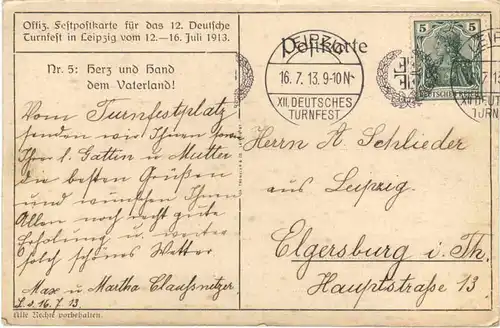 Offiz. Festpostkarte für das 12. Deutsche
Turnfest in Leipzig vom 12.—16. Juli 1913.
Nr. 5: Herz und Hand
dem Vaterland!
Vom Turnfestplatz
senden wir Ihnen sowie
Ihrer l. Gattin u. Mutter
die besten Grüßen
und wünschen Ihnen
Allen noch recht gute
Erholung u. weiter
solch schönes Wetter
Max u. Martha Claußnitzer
L. d. 16. 7. 13.
Alle Rechte vorbehalten.
Postkarte
LEIPZIG
16. 7. 13. 9-10 N
XII. DEUTSCHES
TURNFEST
5 5
DEUTSCHES REICH
LEIPZ
7. 13
XII. DEUT
TURN
Herrn A Schlieder
aus Leipzig.
Elgersburg i. Th.
Hauptstraße 13